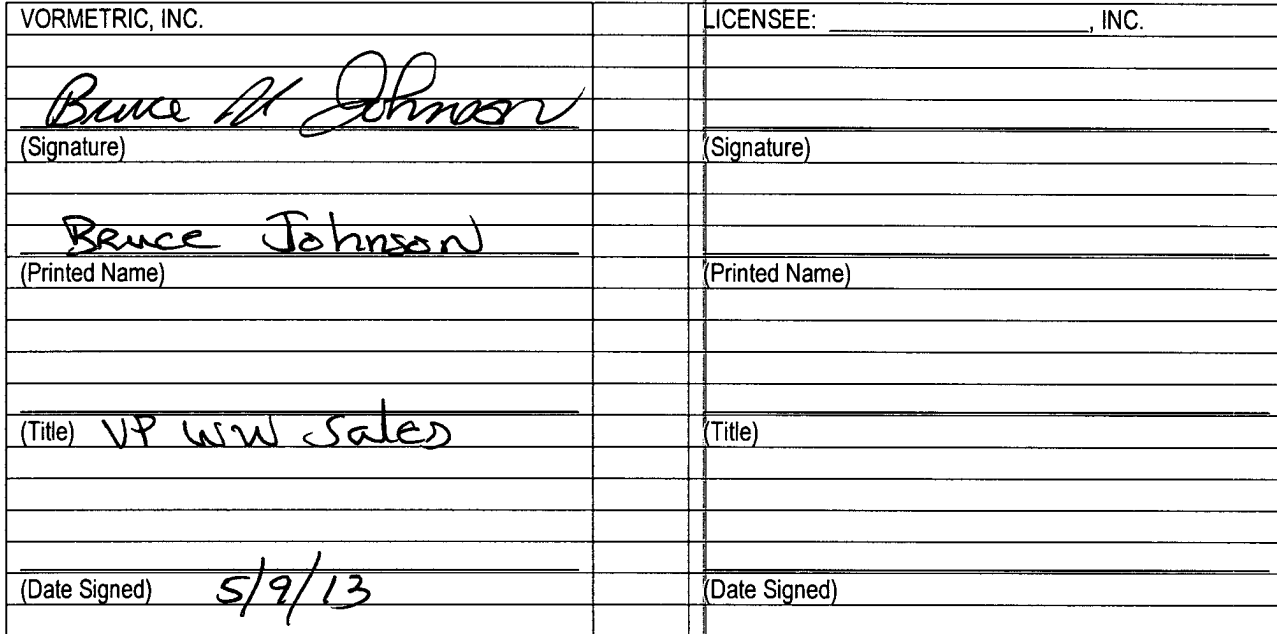 VORMETRIC, INC.
LICENSEE: ____________________, INC.
Bruce Johnson
(Signature)
(Signature)
Bruce Johnson
(Printed Name)
(Printed Name)
(Title) VP WW Sales
(Title)
(Date Signed) 5/9/13
(Date Signed)